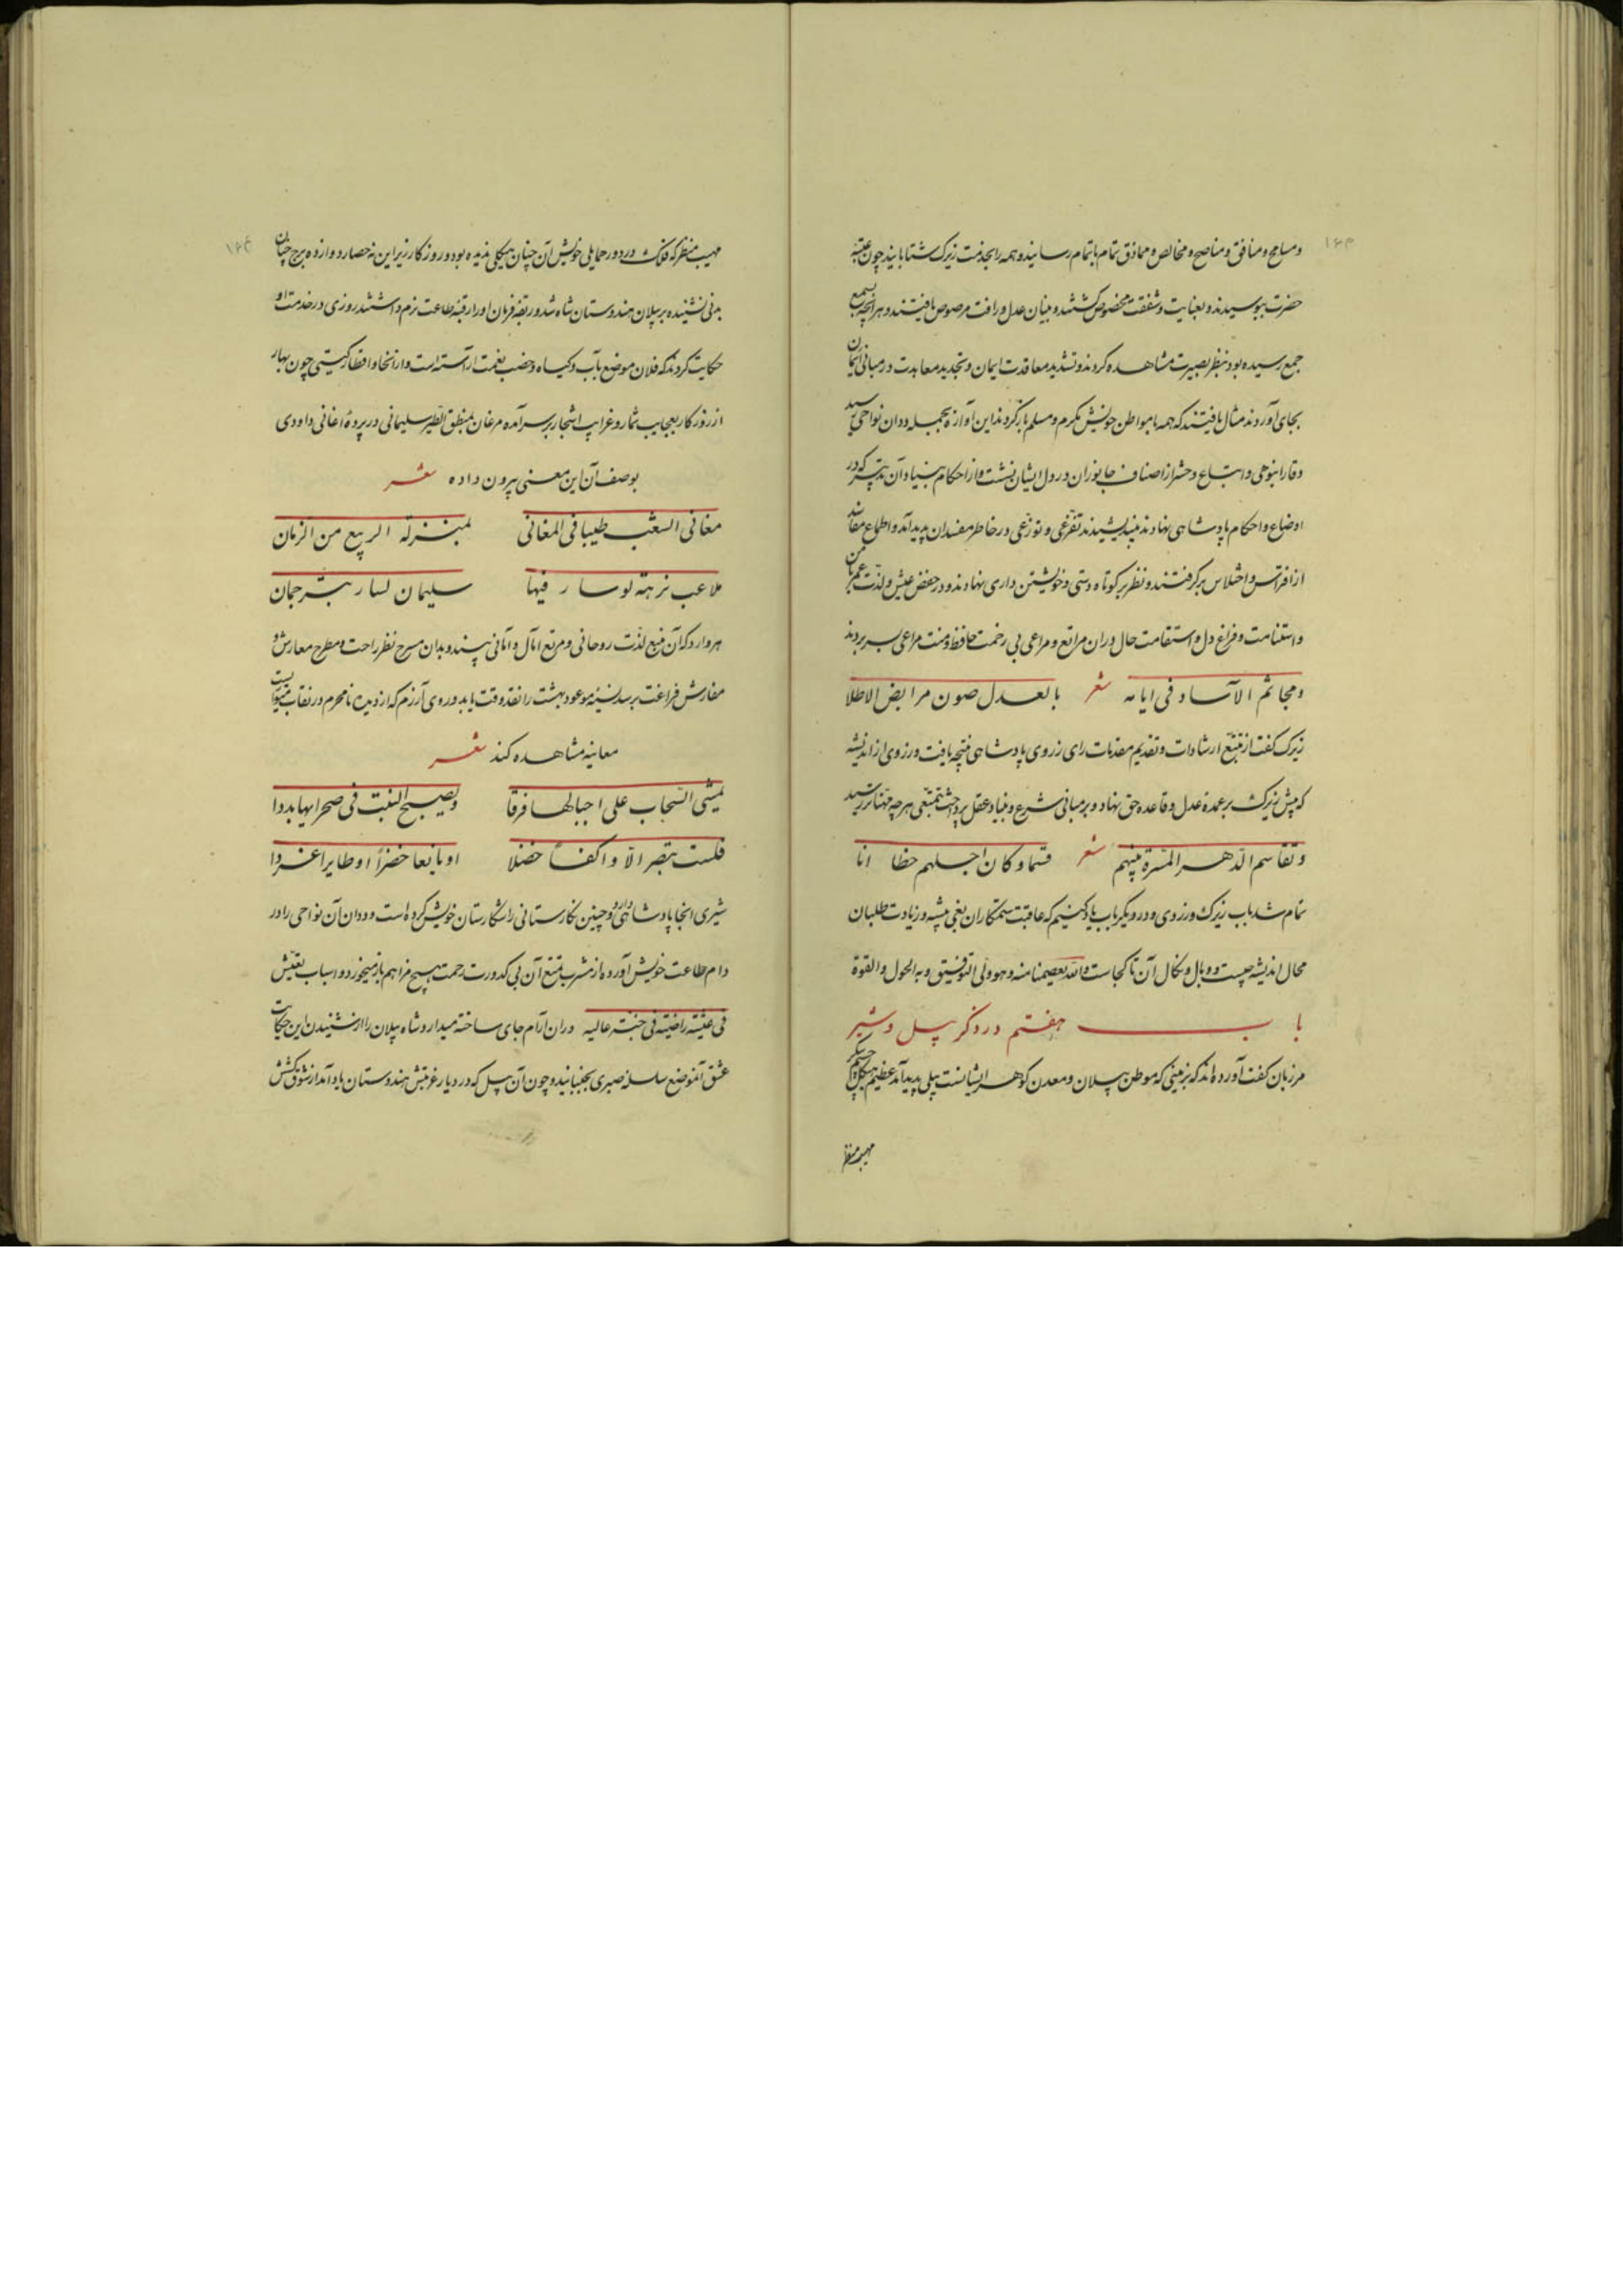 و مسامح و منافق و مناصح و مخالص و مماذق تمام باتمام رسانید و همه را بخدمت زیرک شتابانید چون عتبهٔ
حضرت ببوسیدند و بعنایت و شفقت مخصوص گشتند و ببنیان عدل و رافت مرصوص یافتند و هر آنچه بسمع
جمع رسیده بود بنظر بصیرت مشاهده کردند و تشدید معاقدت ایمان و تجدید معاهدت در مبانی ایمان
بجای آوردند مثال یافتند که همه با مواطن خویش مکرم و مسلم بازگردند این آوازه بجمله ددان نواحی برسید
وقار انبوهی و اتباع و حشر از اصناف جانوران در دل ایشان نشست و از احکام بنیاد آن تدبیر که در
اوضاع و احکام پادشاهی نهادند بیندیشیدند تفرغی و توزعی در خاطر مفسدان پدید آمد و اطماع فاسد
از افتراس و اختلاس برگرفتند و نظر بر کوتاه دستی و خویشتن داری نهادند و در خفض عیش و لذت عمر امن
و استنامت و فراغ دل و استقامت حال در آن مراتع و مراعی بی زحمت حافظ و منت مراعی بسر بردند
و مجاثم الآساد فی ایامه شعر بالعدل صون مرابض الاطلا
زیرک گفت از تتبع ارشادات و تقدیم مقدمات رای زروی پادشاهی نتیجه یافت و زروی از اندیشه
که پیش زیرک بر عمدهٔ عدل و قاعده حق نهاد و بر مبانی شرع و بنیاد عقل پرداخت بمبتغی هر چه مهناتر رسید
و تقاسم الدهر المسرة بینهم شعر قسما و کان اجلهم حظا انا
تمام شد باب زیرک و زروی و در دیگر باب یاد کنیم که عاقبت ستمکاران بغی پیشه و زیادت طلبان
محال اندیشه چیست و وبال و نکال آن تا کجاست والله یعصمنا منه و هو ولی التوفیق و به الحول و القوة
باب هفتم در ذکر پیل و شیر
مرزبان گفت آورده اند که بزمینی که موطن پیلان و معدن گوهر ایشانست پیلی پدید آمد عظیم هیکل جسیم پیکر
مهیب منظر
مهیب منظر که فلک در دور حمایلی خویش آن چنان هیکلی ندیده بود و روزگار زیر این نه حصار دوازده برج چنان
بدنی ننشینده بر پیلان هندوستان شاه شد و ربقهٔ فرمان او را رقبهٔ طاعت نرم داشتند روزی در خدمت او
حکایت کردند که فلان موضع بآب و گیاه و خصب نعمت آراسته است و از انحا و اقطار گیتی چون بهار
از روزگار بعجایب ثمار و غرایب اشجار بر سر آمده مرغان بمنطق الطیر سلیمانی در پردهٔ اغانی داودی
بوصف آن این معنی بیرون داده شعر
مغانی الشعب طیبا فی المغانی بمنزلة الربیع من الزمان
ملاعب نزهة لو سار فیها سلیمان لسار بترجمان
هر وارد که آن منبع لذت روحانی و مرتع آمال و امانی بیند و بدان مسرح نظر راحت و مطرح معارش و
مفارش فراغت برسد نسیهٔ موعود بهشت را نقد وقت یابد و روی آرزم که از دیدهٔ نامحرم در نقاب متواریست
معاینه مشاهده کند شعر
یمشی السحاب علی اجبالها فرقا و یصبح النبت فی صحرایها بددا
فلست تبصر الا واکفا خضلا او یانعا خضرا او طایرا غردا
شیری آنجا پادشاهی دارد و چنین نگارستانی را شکارستان خویش کرده است و ددان آن نواحی را در
دام طاعت خویش آورده از مشرب تمتع آن بی کدورت زحمت هیچ مزاحم باز میخورد و اسباب تعیش
فی عیشة راضیة فی جنة عالیه در آن آرام جای ساخته میدارد شاه پیلان را از شنیدن این حکایت
عشق آنموضع سلسلهٔ صبری بجنبانید و چون آن پیل که در دیار غربتش هندوستان یاد آمد از شوق کشش